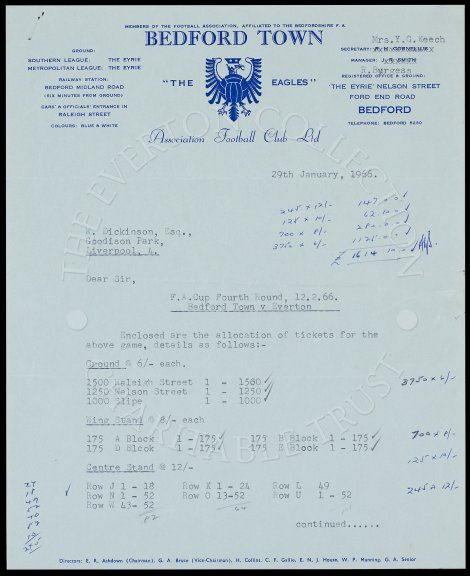 MEMBERS OF THE FOOTBALL ASSOCIATION, AFFILIATED TO THE BEDFORDSHIRE F.A.
BEDFORD TOWN
"THE EAGLES"
Association Football Club Ltd
GROUND:
SOUTHERN LEAGUE: THE EYRIE
METROPOLITAN LEAGUE: THE EYRIE
RAILWAY STATION:
BEDFORD MIDLAND ROAD
(SIX MINUTES FROM GROUND)
CARS' & OFFICIALS' ENTRANCE IN
RALEIGH STREET
COLOURS: BLUE & WHITE
Mrs.Y.G.Keech
SECRETARY:
MANAGER:
R.Burgess
REGISTERED OFFICE & GROUND:
'THE EYRIE' NELSON STREET
FORD END ROAD
BEDFORD
TELEPHONE: BEDFORD 5230
29th January, 1966.
245 x 12/- 147.0.0
125 x 10/- 62.10.0
700 x 8/- 280.0.0
3750 x 6/- 1125.0.0
£ 1614.10.0
W. Dickinson, Esq.,
Goodison Park,
Liverpool, 4.
Dear Sir,
F.A.Cup Fourth Round, 12.2.66.
Bedford Town v Everton
Enclosed are the allocation of tickets for the
above game, details as follows:-
Ground @ 6/- each.
1500 Raleigh Street 1 - 1500
1250 Nelson Street 1 - 1250
1000 Slipe 1 - 1000
3750 x 6/-
Wing Stand @ 8/- each
175 A Block 1 - 175 175 B Block 1 - 175
175 D Block 1 - 175 175 E Block 1 - 175
700 x 8/-
125 x 10/-
Centre Stand @ 12/-
Row J 1 - 18 Row K 1 - 24 Row L 49
Row N 1 - 52 Row O 13-52 Row U 1 - 52
Row W 43- 52
245 x 12/-
continued......
Directors: E. R. Ashdown (Chairman), G. A. Bruce (Vice-Chairman), H. Collins, C. F. Gallie, E. N. J. House, W. P. Manning, G. A. Senior
THE EVERTON COLLECTION
CHARITABLE TRUST